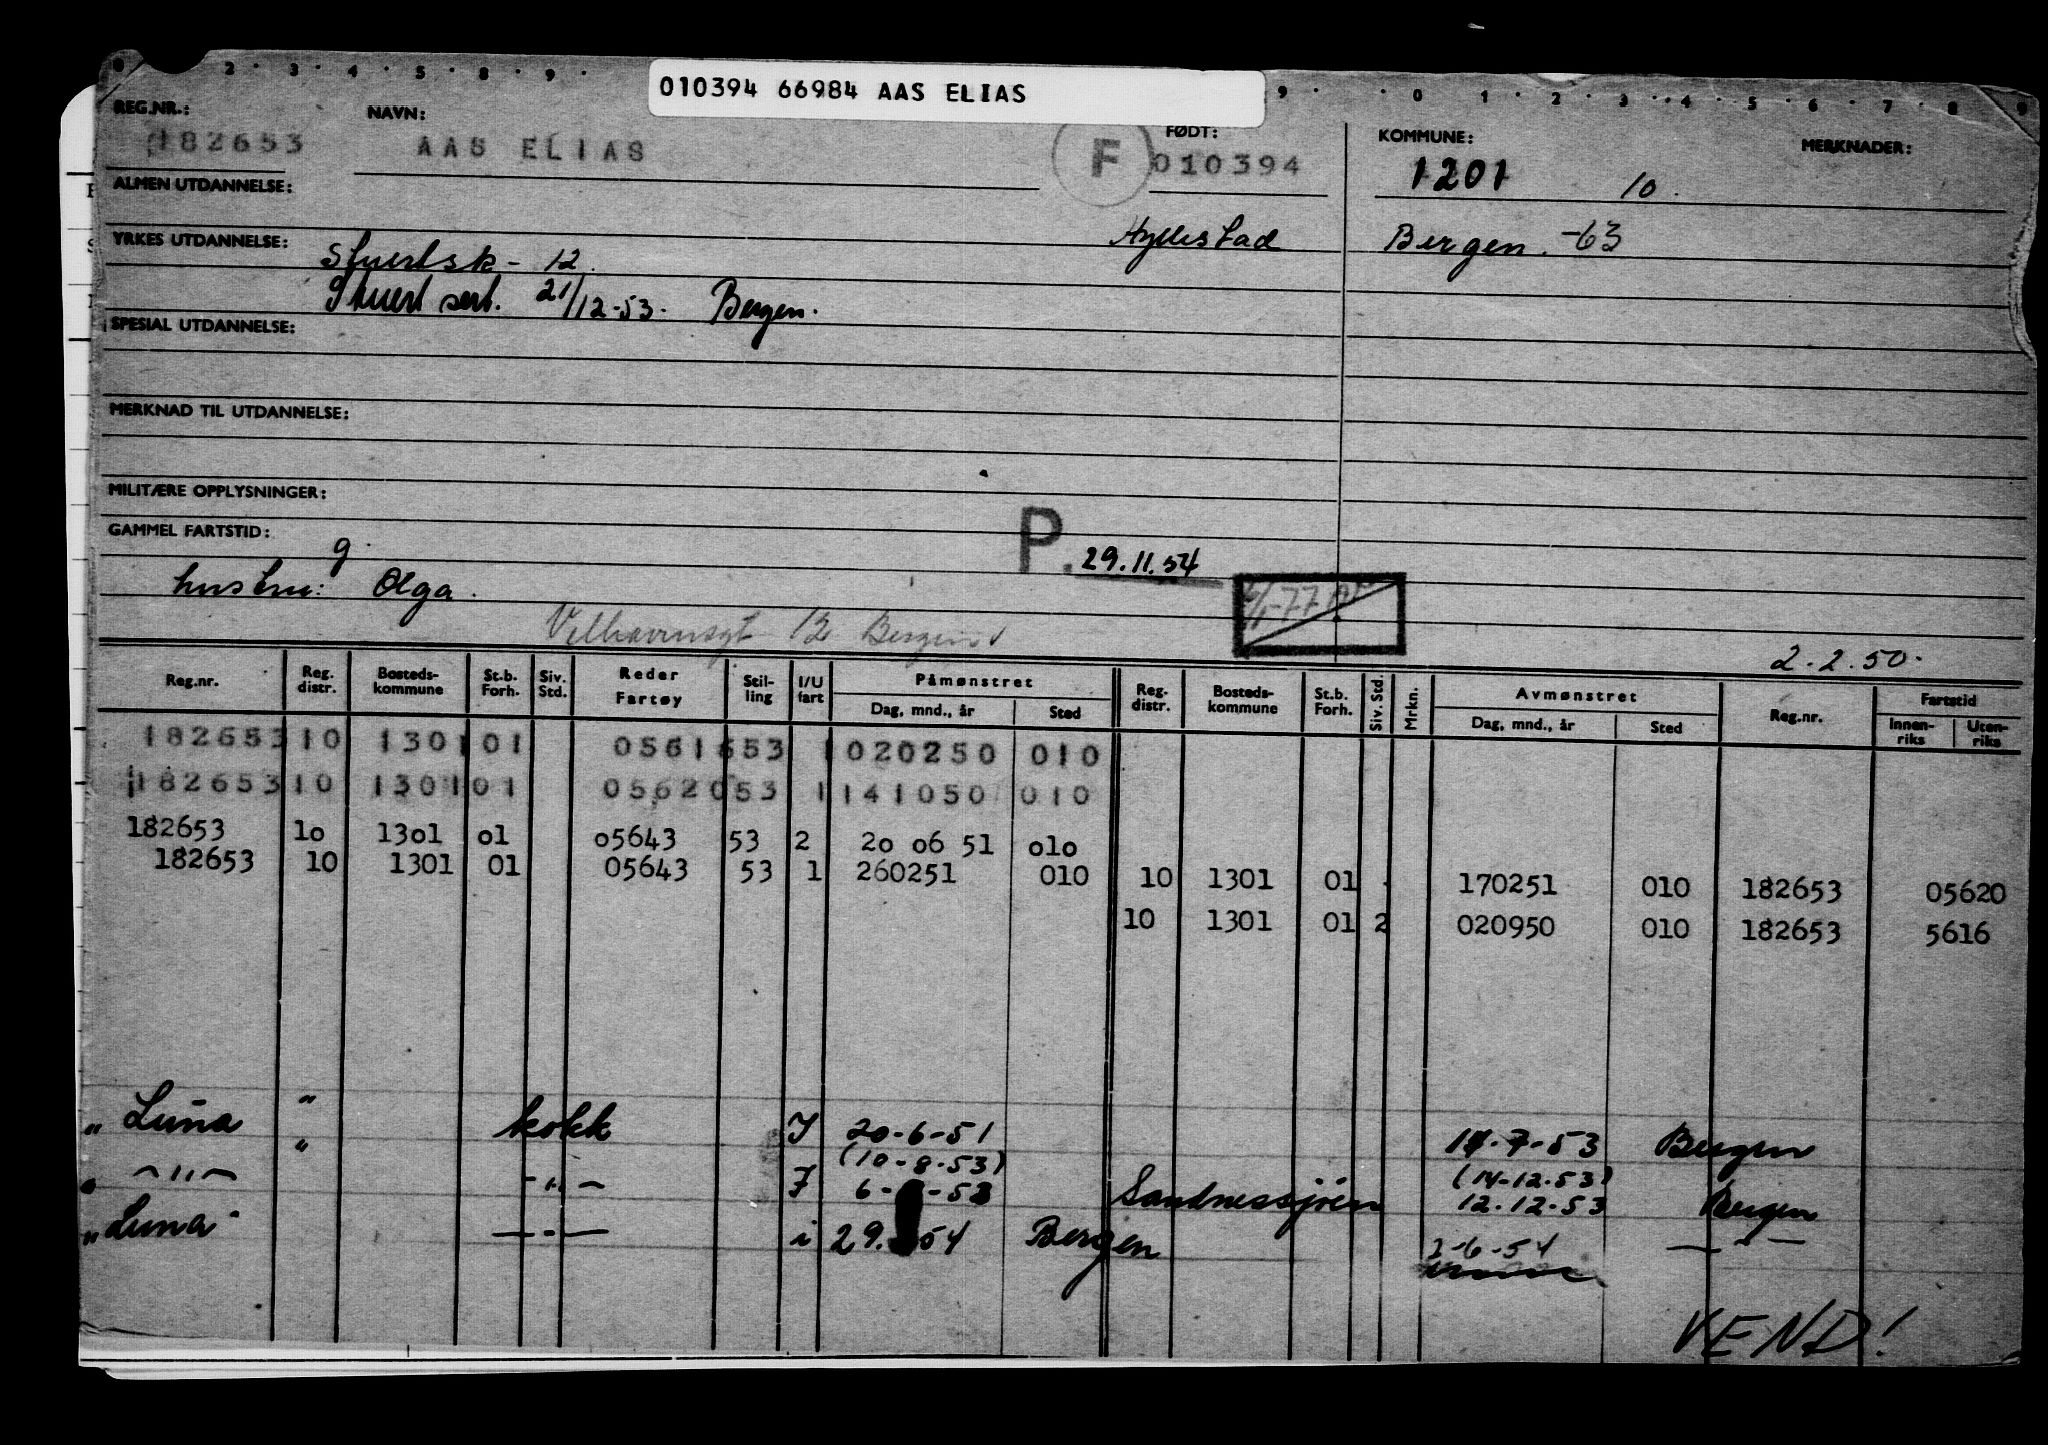 0 2 3 4 5 8 9 9 0 1 2 3 4 5 6 7 8 9
010394 66984 AAS ELIAS
REG.NR.: NAVN: FØDT: KOMMUNE: MERKNADER:
182653 AAS ELIAS F 010394 1201 10.
ALMEN UTDANNELSE:
Hyllestad Bergen. -63
YRKES UTDANNELSE: Stuertsk- 12.
Stuert sert. 21/12-53. Bergen.
SPESIAL UTDANNELSE:
MERKNAD TIL UTDANNELSE:
MILITÆRE OPPLYSNINGER:
GAMMEL FARTSTID:
g. P. 29.11.54
hustru: Olga.
12 Bergen
2.2.50.
Reg.nr. Reg. distr. Bosteds-kommune St.b. Forh. Siv. Std. Reder Fartøy Stil-ling I/U fart Påmønstret Dag, mnd., år Sted Reg. distr. Bosteds-kommune St.b. Forh. Siv. Std. Mrkn. Avmønstret Dag, mnd., år Sted Reg.nr. Fartstid Innen-riks Uten-riks
182653 10 1301 01 05616 53 1 020250 010
182653 10 1301 01 05620 53 1 141050 010
182653 10 1301 01 05643 53 2 20 06 51 010
182653 10 1301 01 05643 53 1 260251 010 10 1301 01 170251 010 182653 05620
10 1301 01 2 020950 010 182653 5616
" Luna " kokk I 20-6-51 14-7-53 Bergen
(10-8-53) (14-12.53)
" — " — " — " — I 6- -53 Sandnessjøen 12.12.53 Bergen
" Luna " — " — i 29. 54 Bergen 2-6-54 — " —
VEND!